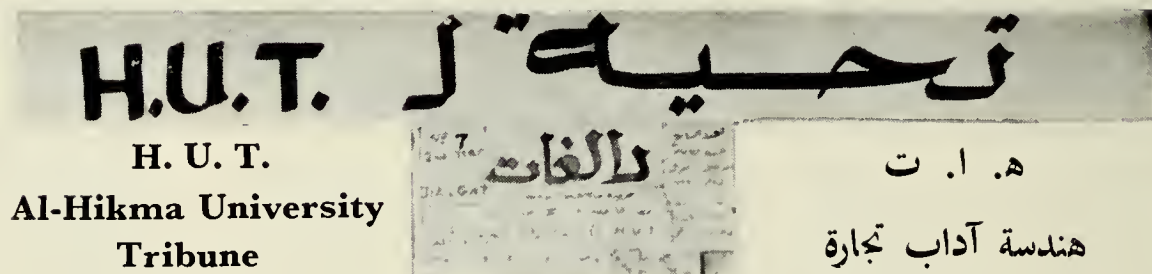 تحية ل H.U.T.
H. U. T.
Al-Hikma University
Tribune
7
دالغات
ه. ا. ت
هندسة آداب تجارة